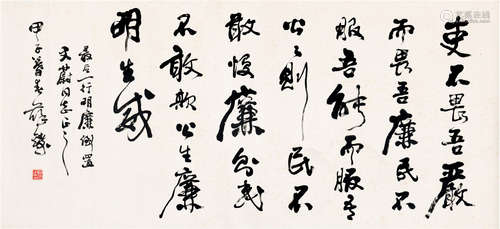 吏不畏吾嚴
而畏吾廉民不
服吾能而服吾
公〻則民不
敢慢廉則吏
不敢欺公生廉
明生威
最后一行明廉倒置
同志正之
甲子暮春